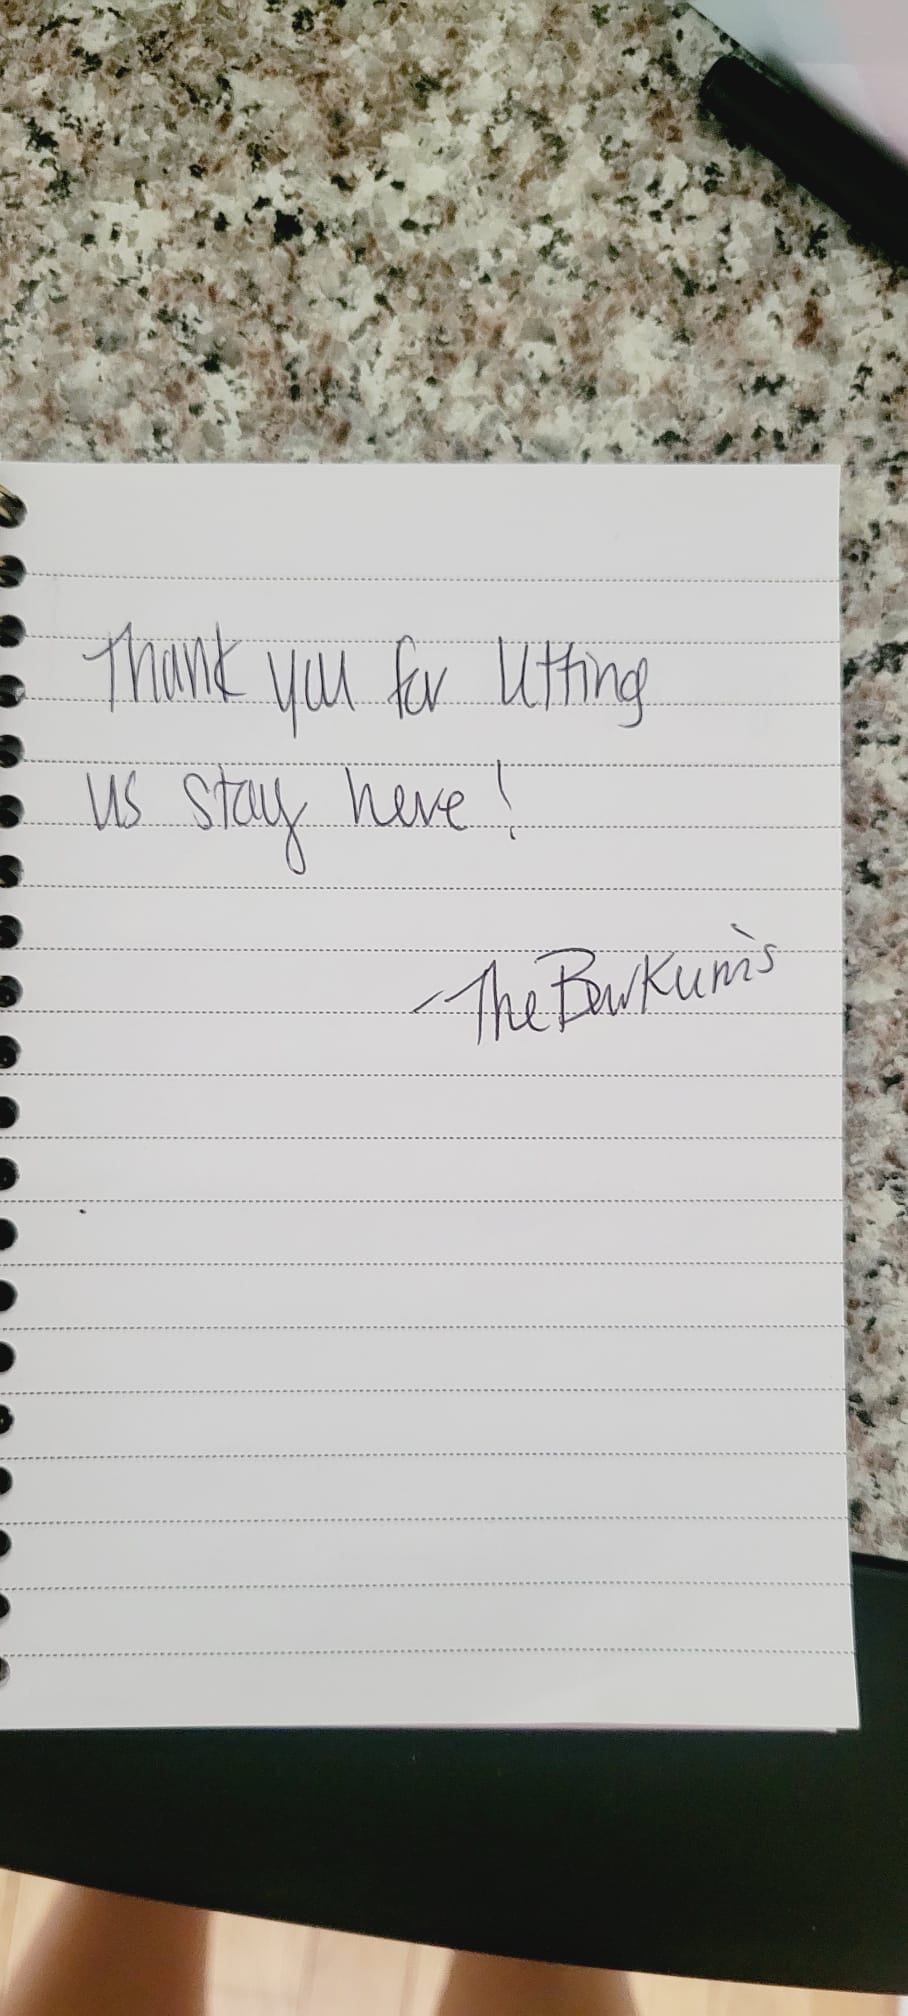 Thank you for letting
us stay here!
- The Berkum's